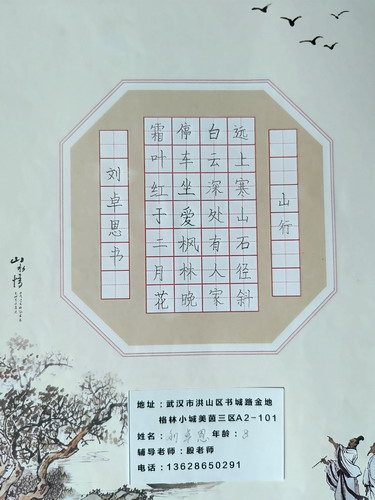 山行
远上寒山石径斜
白云深处有人家
停车坐爱枫林晚
霜叶红于二月花
刘卓思书
山水情
地址：武汉市洪山区书城路金地
格林小城美茵三区A2-101
姓名：刘卓思 年龄：8
辅导老师：殷老师
电话：13628650291